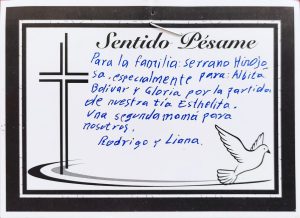 Sentido Pésame
Para la familia: Serrano Hinojo
sa. especialmente para: Albita
Bolivar y Gloria por la partida
de nuestra tía Esthelita.
una segunda mamá para
nosotros.
Rodrigo y Liana.